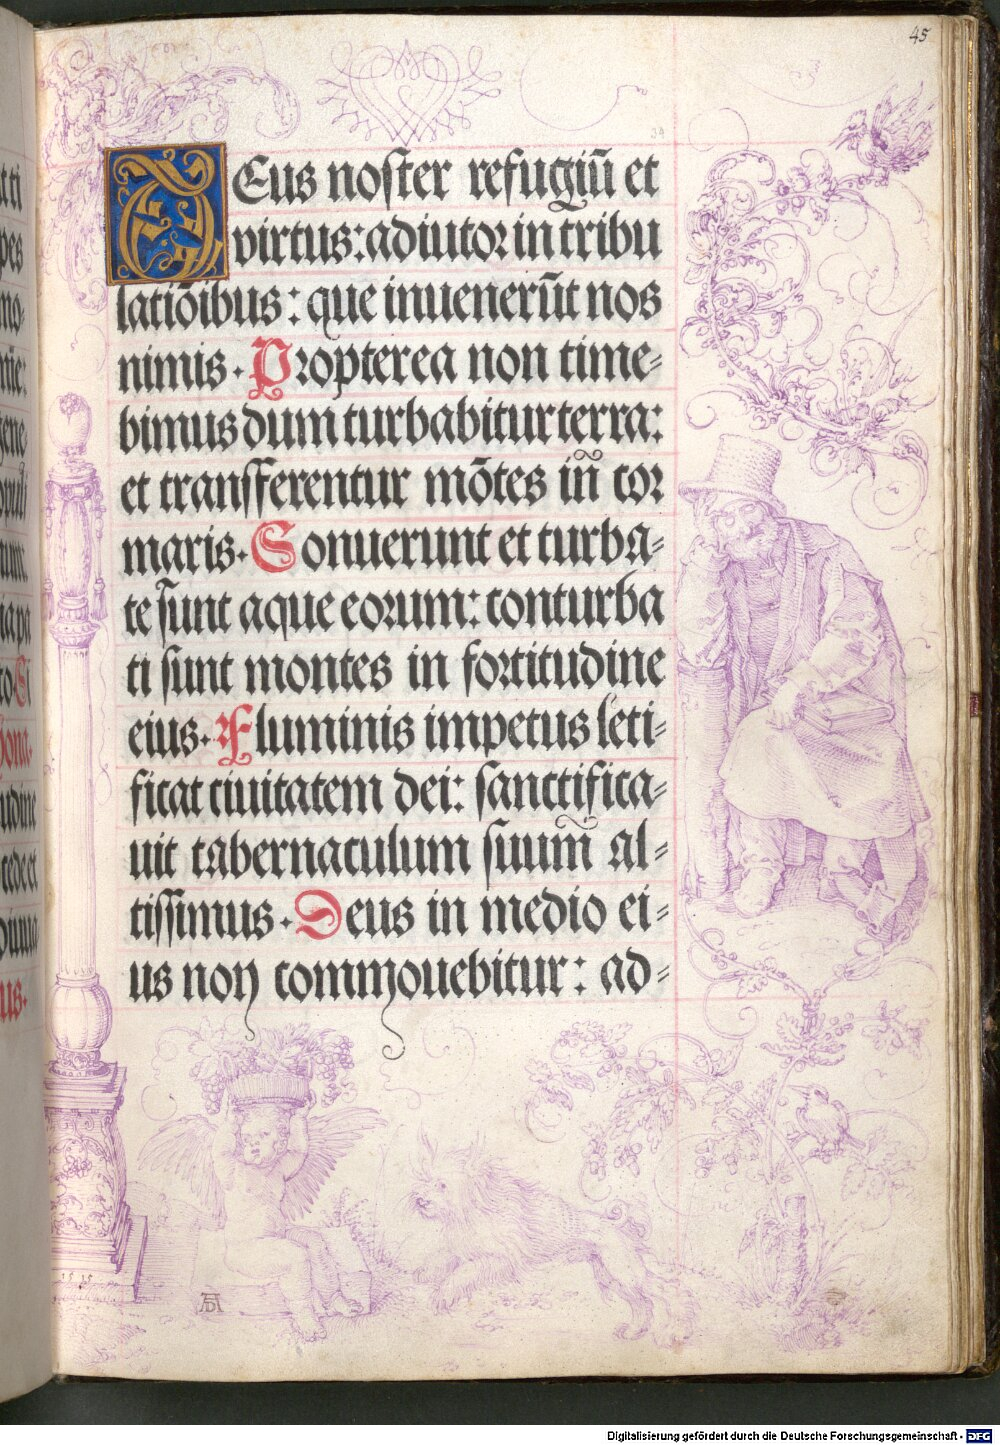 45
34
Deus noster refugiū et
virtus: adiutor in tribu
latiōibus: que inuenerūt nos
nimis. Propterea non time-
bimus dum turbabitur terra:
et transferentur mōtes in̄ cor
maris. Sonuerunt et turba-
te sunt aque eorum: conturba
ti sunt montes in fortitudine
eius. Fluminis impetus leti-
ficat ciuitatem dei: sanctifica-
uit tabernaculum suum̄ al-
tissimus. Deus in medio ei-
us non commouebitur: ad-
1515
AD
Digitalisierung gefördert durch die Deutsche Forschungsgemeinschaft - DFG